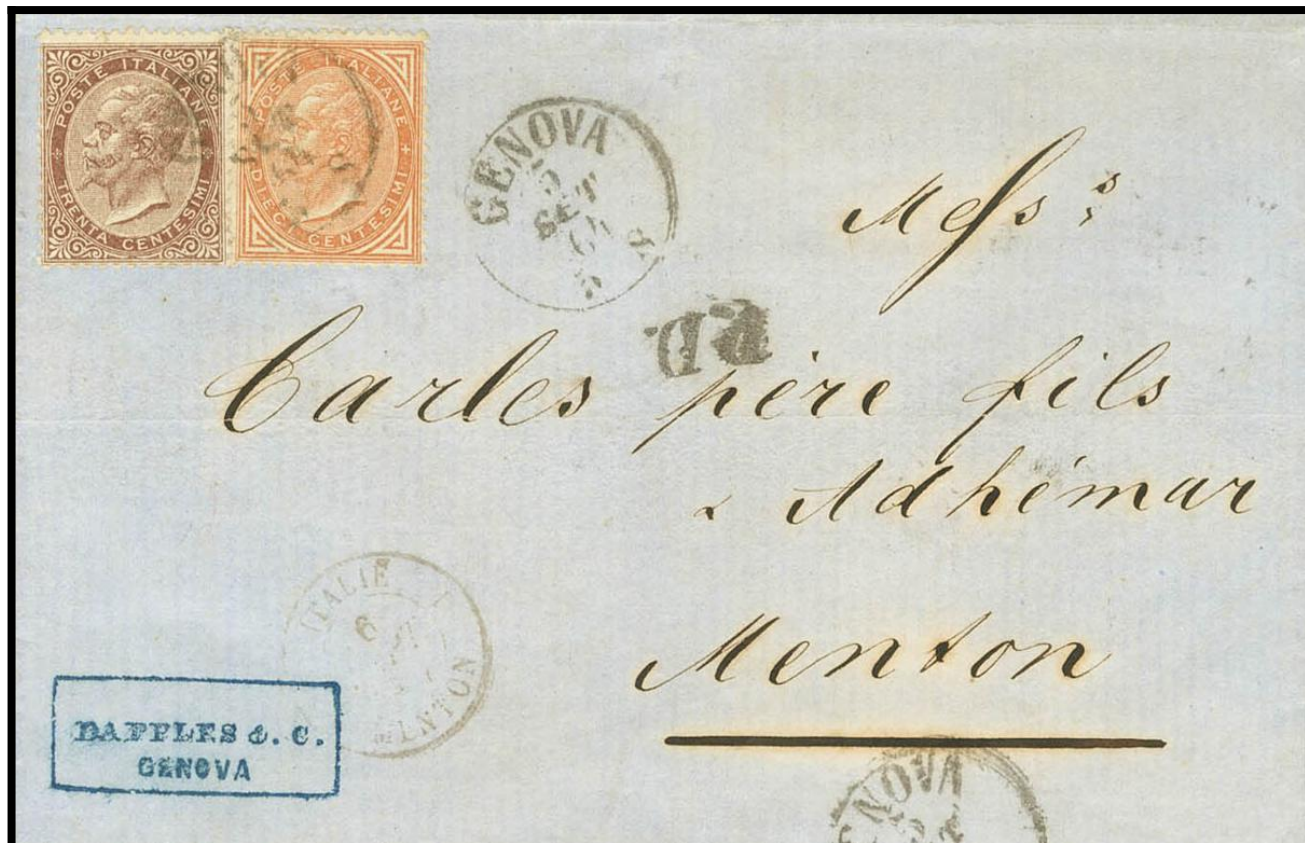 POSTE ITALIANE
TRENTA CENTESIMI
POSTE ITALIANE
DIECI CENTESIMI
GENOVA
5
SET
65
P.D.
Mess.s
Carles père fils
& Adhémar
Menton
ITALIE
6
MENTON
DAPPLES & C.
GENOVA
GENOVA